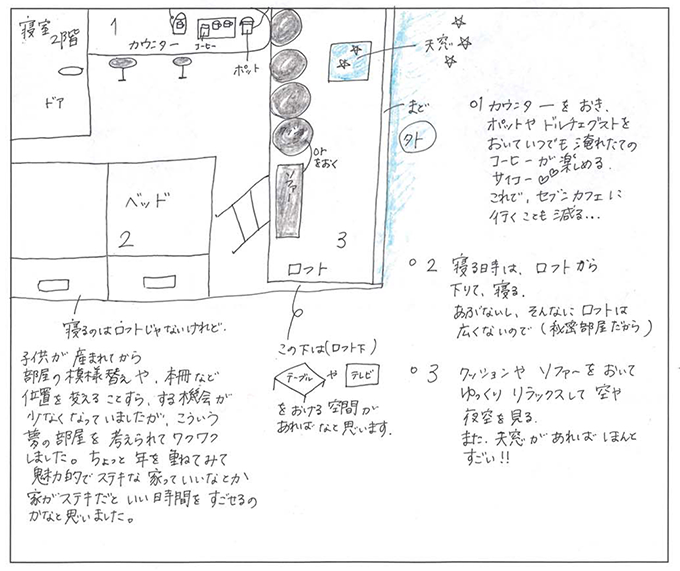 寝室
2階
ドア
1
カウンター
コーヒー
ポット
天窓
まど
外
or
をおく
ソファー
3
ロフト
ベッド
2
01 カウンターをおき、
ポットやドルチェグストを
おいていつでも淹れたての
コーヒーが楽しめる。
サイコー♡♡
これで、セブンカフェに
行くことも減る...
○2 寝る時は、ロフトから
下りて、寝る。
あぶないし、そんなにロフトは
広くないので(秘密部屋だから)
○3 クッションやソファーをおいて
ゆっくりリラックスして空や
夜空を見る。
また、天窓があればほんと
すごい!!
寝るのはロフトじゃないけれど。
子供が産まれてから
部屋の模様替えや、本棚など
位置を変えることすら、する機会が
少なくなっていましたが、こういう
夢の部屋を考えられてワクワク
しました。ちょっと年を重ねてみて
魅力的でステキな家っていいなとか
家がステキだといい時間をすごせるの
かなと思いました。
この下は(ロフト下)
テーブルやテレビ
をおける空間が
あればなと思います。